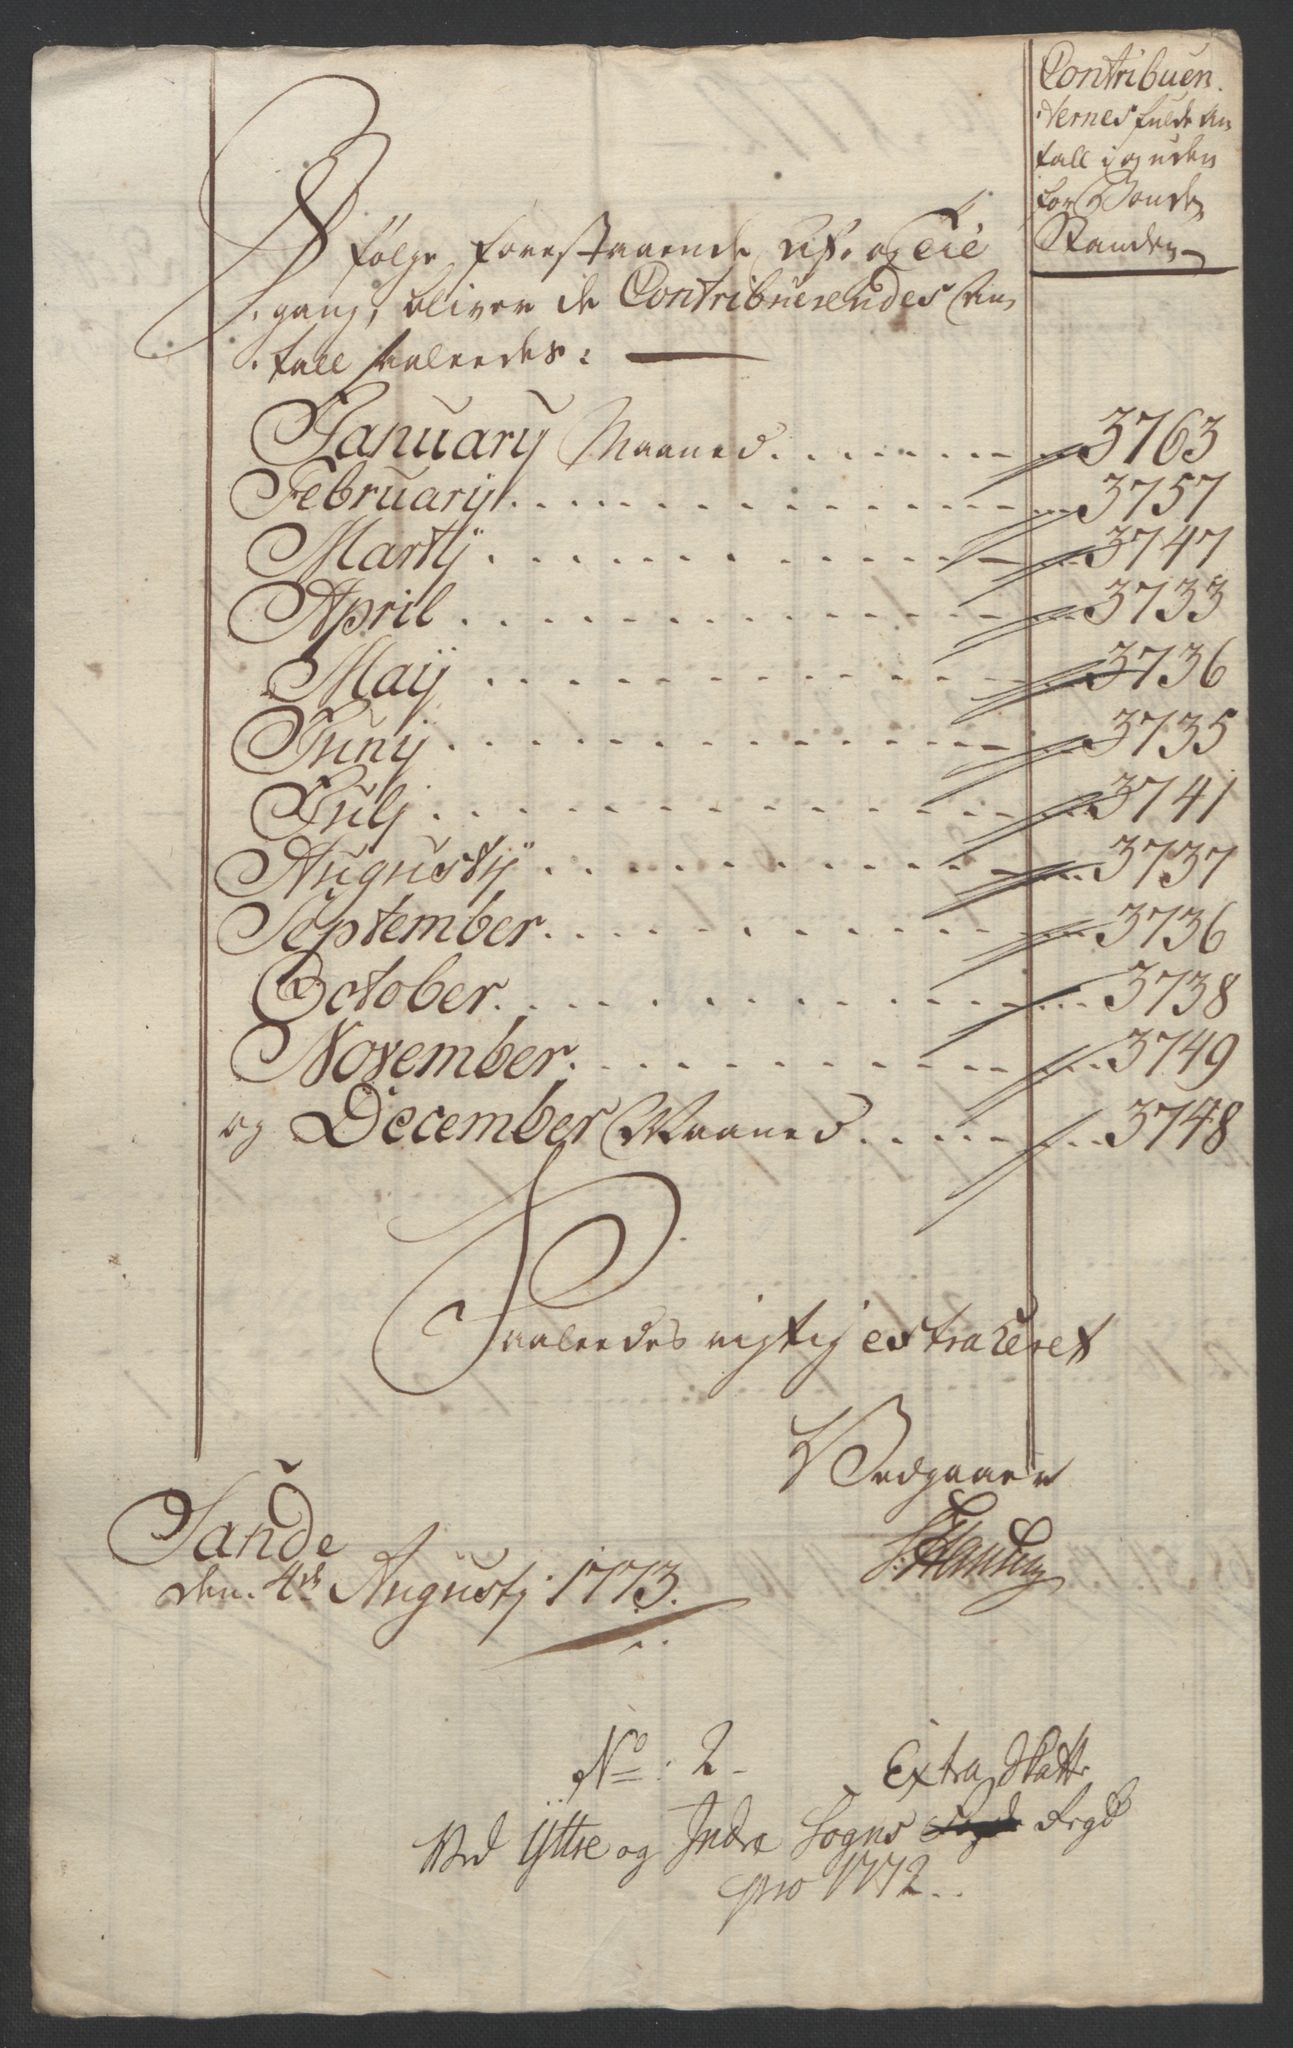 Contribuen-
ternes fulde An
tall i og uden
for Bonde
Standen
I
følge forestaaende Af- og Til
gang, bliver de Contribuerendes An
tall saaledes:
January Maaned 3763
February 3757
Martij 3747
April 3733
Maij 3736
Junij 3735
Julj 3741
Augustij 3737
September 3736
October 3738
November 3749
og December Maaned 3748
Saaledes rigtig extraheret
Vedgaaer
Sande
den 4de Augustj 1773.
No: 2 Extra Skatt
Ved Yttre og Indre Sogns Fogd
pro 1772